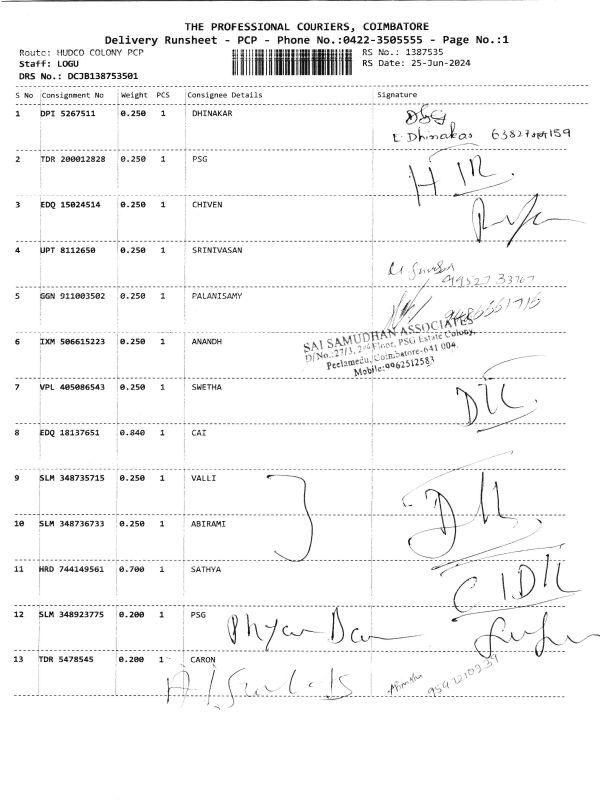 THE PROFESSIONAL COURIERS, COIMBATORE
Delivery Runsheet - PCP - Phone No.:0422-3505555 - Page No.:1
Route: HUDCO COLONY PCP RS No.: 1387535
Staff: LOGU RS Date: 25-Jun-2024
DRS No.: DCJB138753501
S No Consignment No Weight PCS Consignee Details Signature
1 DPI 5267511 0.250 1 DHINAKAR
L. Dhinakar
2 TDR 200012828 0.250 1 PSG
3 EDQ 15024514 0.250 1 CHIVEN
4 UPT 8112650 0.250 1 SRINIVASAN
5 GGN 911003502 0.250 1 PALANISAMY
SAI SAMUDHAN ASSOCIATES
D/No.:27/3, 2nd Floor, PSG Estate Colony,
Peelamedu, Coimbatore-641 004.
Mobile:9962512583
6 IXM 506615223 0.250 1 ANANDH
7 VPL 405086543 0.250 1 SWETHA
8 EDQ 18137651 0.840 1 CAI
9 SLM 348735715 0.250 1 VALLI
10 SLM 348736733 0.250 1 ABIRAMI
11 HRD 744149561 0.700 1 SATHYA
12 SLM 348923775 0.200 1 PSG
13 TDR 5478545 0.200 1 CARON